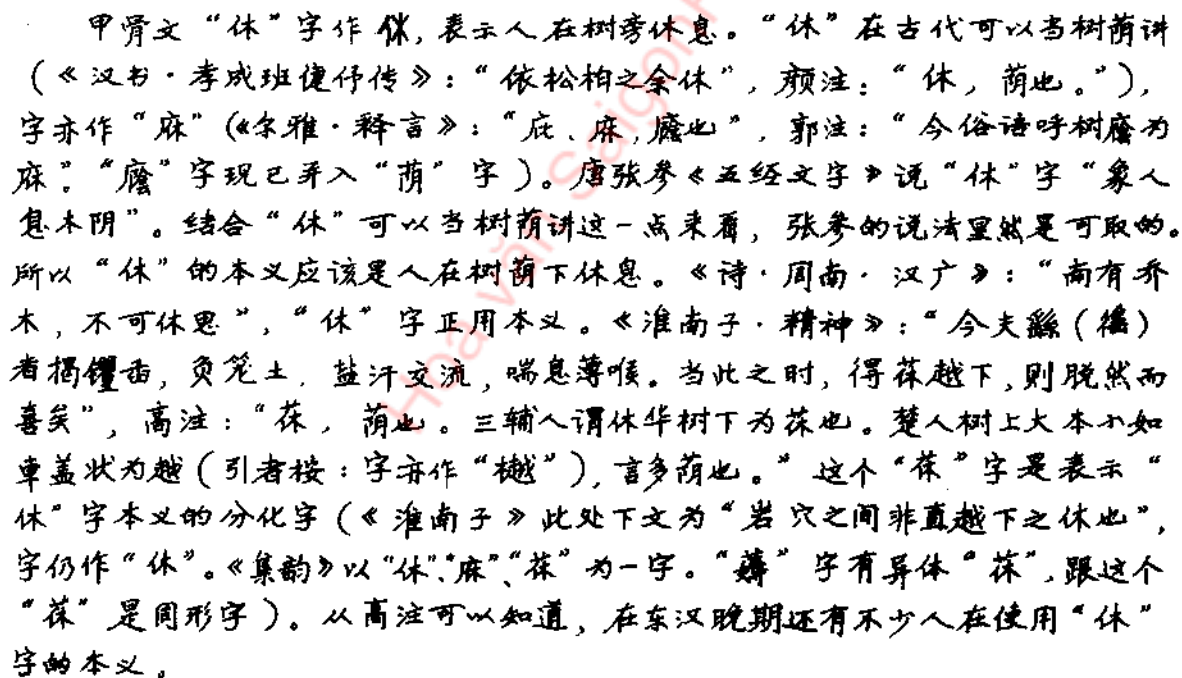 甲骨文“休”字作 㑵,表示人在树旁休息。“休”在古代可以当树荫讲
(《汉书·孝成班倢伃传》:“依松柏之余休”,颜注:“休,荫也。”),
字亦作“庥”(《尔雅·释言》:“庇、庥,廕也”,郭注:“今俗语呼树廕为
庥”。“廕”字现已并入“荫”字)。唐张参《五经文字》说“休”字“象人
息木阴”。结合“休”可以当树荫讲这一点来看,张参的说法显然是可取的。
所以“休”的本义应该是人在树荫下休息。《诗·周南·汉广》:“南有乔
木,不可休思”,“休”字正用本义。《淮南子·精神》:“今夫繇(徭)
者揭钁臿,负笼土,盐汗交流,喘息薄喉。当此之时,得茠越下,则脱然而
喜矣”,高注:“茠,荫也。三辅人谓休华树下为茠也。楚人树上大本小如
車盖状为越(引者按:字亦作“樾”),言多荫也。”这个“茠”字是表示“
休”字本义的分化字(《淮南子》此处下文为“岩穴之间非直越下之休也”,
字仍作“休”。《集韵》以“休”、“庥”、“茠”为一字。“薅”字有异体“茠”,跟这个
“茠”是同形字)。从高注可以知道,在东汉晚期还有不少人在使用“休”
字的本义。
Hoa văn SaigonH